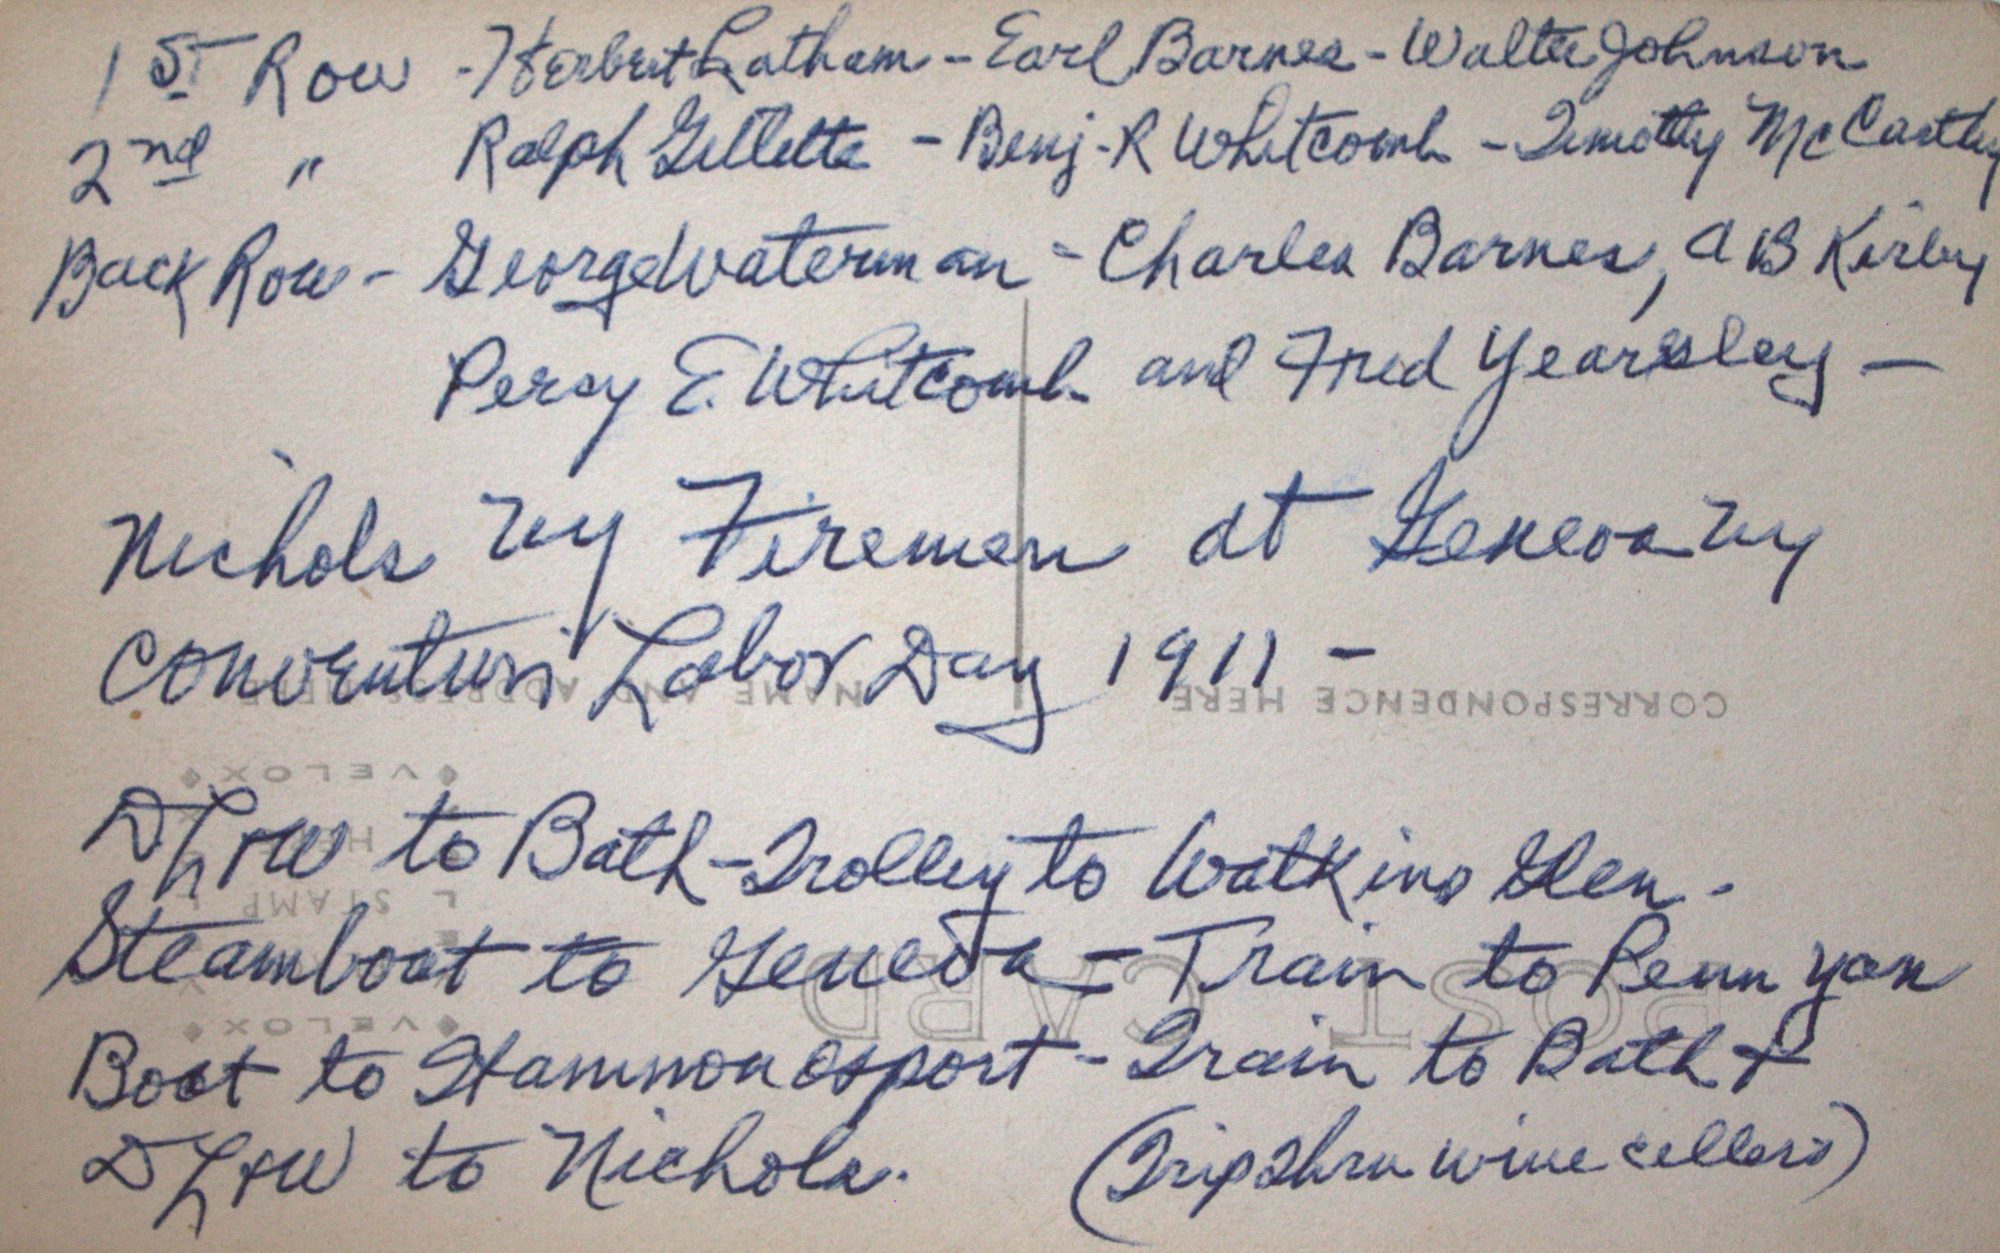 1st Row - Herbert Latham - Earl Barnes - Walter Johnson
2nd " Ralph Gillette - Benj. R Whitcomb - Timothy McCarthy
Back Row - George Waterman - Charles Barnes, A B Kirby
Percy E. Whitcomb and Fred Yearsley -
Nichols NY Firemen at Geneva NY
Convention Labor Day 1911 -
CORRESPONDENCE HERE NAME AND ADDRESS HERE
VELOX
DL+W to Bath - Trolley to Watkins Glen -
STAMP HERE
Steamboat to Geneva - Train to Penn Yan
POST CARD
VELOX
Boat to Hammondsport - Train to Bath +
DL+W to Nichols. (Trip Thru wine cellers)